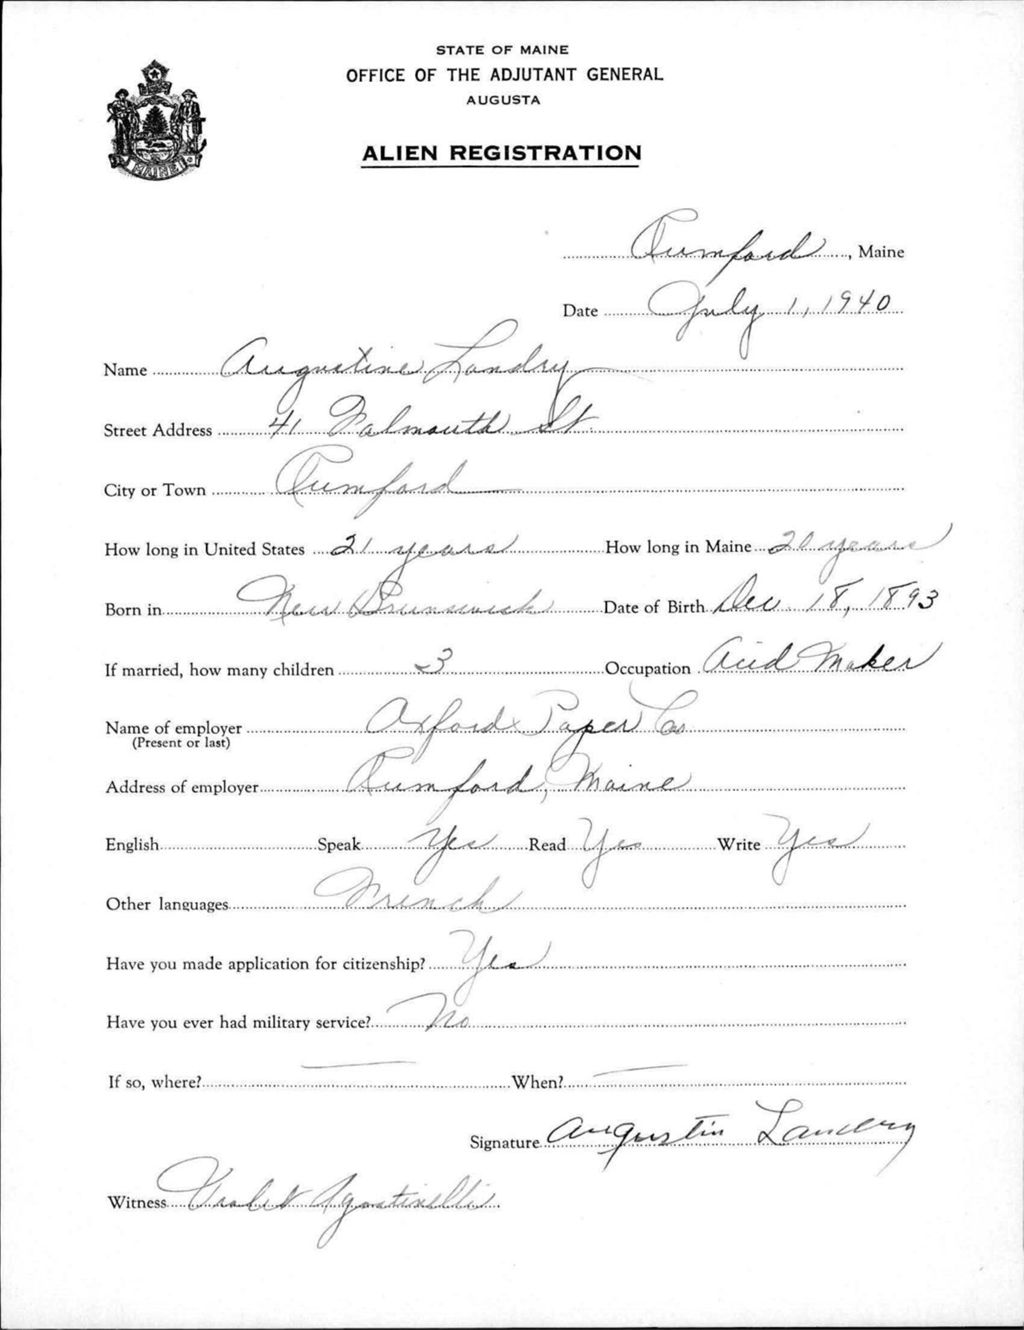 STATE OF MAINE
OFFICE OF THE ADJUTANT GENERAL
AUGUSTA
ALIEN REGISTRATION
MAINE
Rumford, Maine
Date July 1, 1940
Name Augustine Landry
Street Address 41 Falmouth St.
City or Town Rumford
How long in United States 21 years How long in Maine 20 years
Born in New Brunswick Date of Birth Dec 18, 1893
If married, how many children 3 Occupation Acid Maker
Name of employer Oxford Paper Co
(Present or last)
Address of employer Rumford, Maine
English Speak Yes Read Yes Write Yes
Other languages French
Have you made application for citizenship? Yes
Have you ever had military service? No
If so, where? — When? —
Signature Augustin Landry
Witness Violet Agostinelli